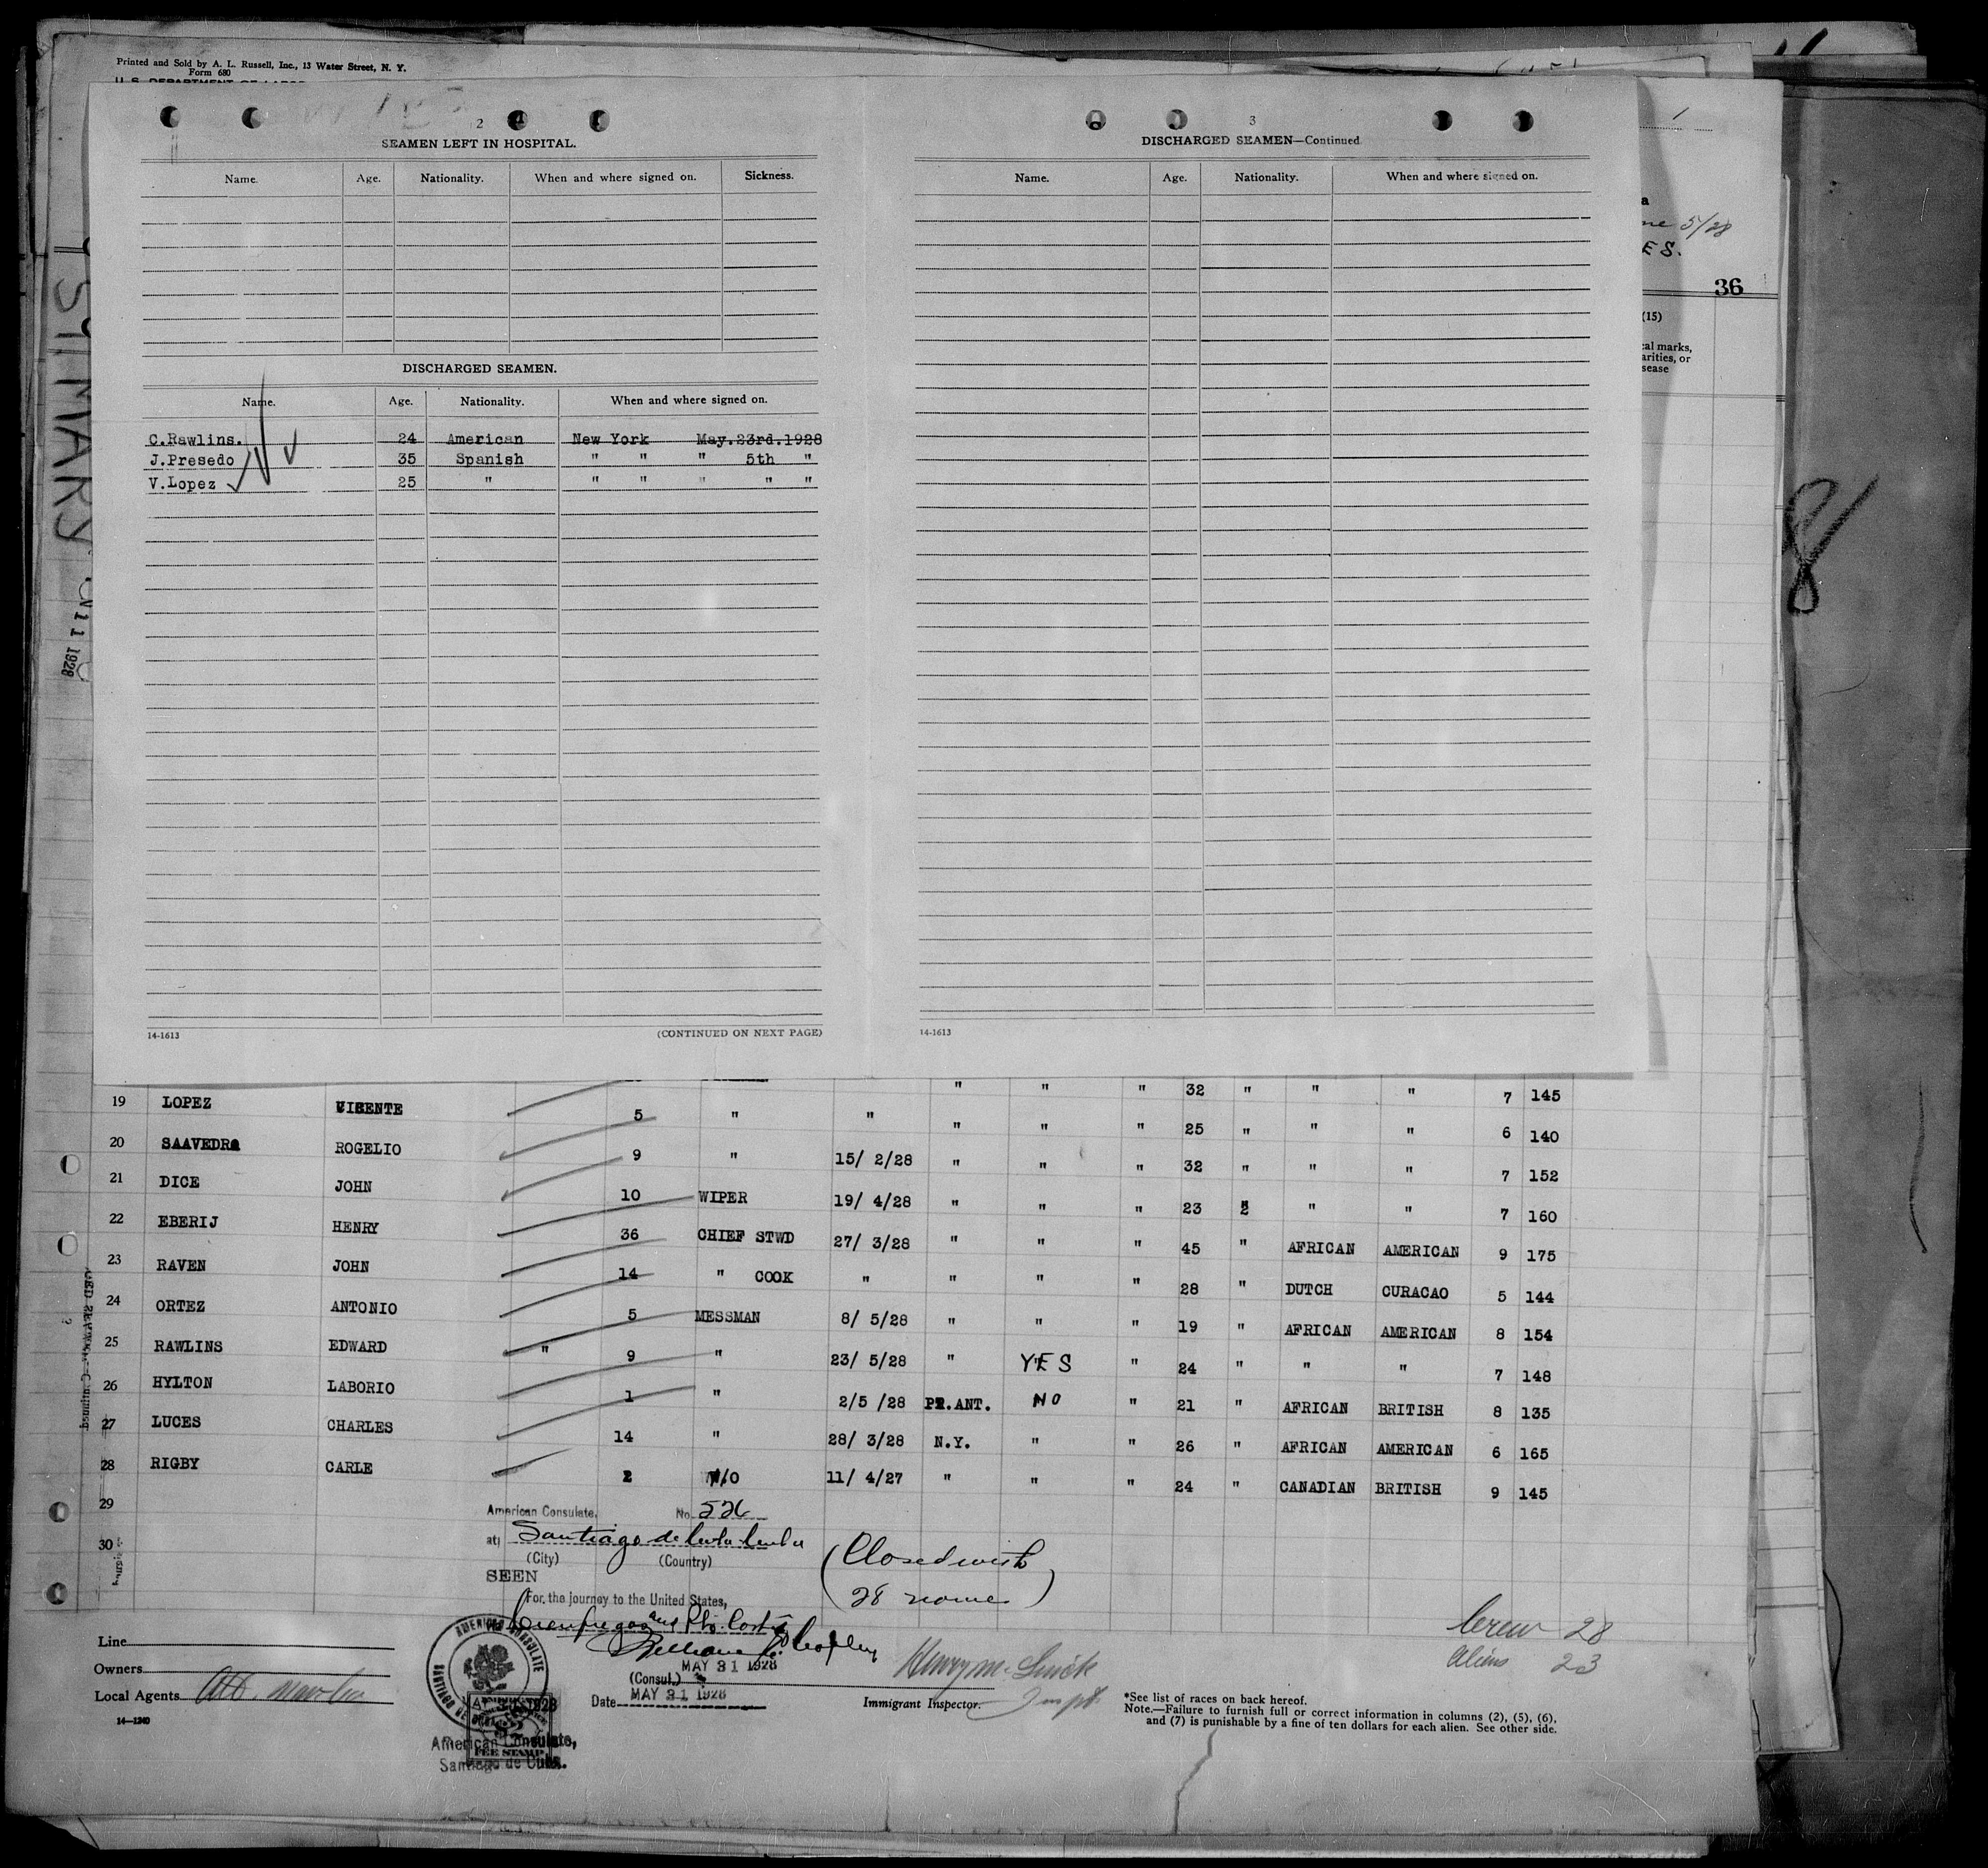 Printed and Sold by A. L. Russell, Inc., 13 Water Street, N. Y.
Form 680
U. S. DEPARTMENT OF LABOR
2
SEAMEN LEFT IN HOSPITAL.
Name. Age. Nationality. When and where signed on. Sickness.
DISCHARGED SEAMEN.
Name. Age. Nationality. When and where signed on.
C.Rawlins. 24 American New York May.23rd.1928
J.Presedo 35 Spanish " " " 5th "
V.Lopez 25 " " " " " "
14-1613 (CONTINUED ON NEXT PAGE)
3
DISCHARGED SEAMEN—Continued
Name. Age. Nationality. When and where signed on.
14-1613
1
5/28
ES.
36
(15)
cal marks,
arities, or
sease
8
SYLMARY
11 1928
" " " 32 " " " 7 145
19 LOPEZ VICENTE 5 " " " " " 25 " " " 6 140
20 SAAVEDRA ROGELIO 9 " 15/ 2/28 " " " 32 " " " 7 152
21 DICE JOHN 10 WIPER 19/ 4/28 " " " 23 " " " 7 160
22 EBERIJ HENRY 36 CHIEF STWD 27/ 3/28 " " " 45 " AFRICAN AMERICAN 9 175
23 RAVEN JOHN 14 " COOK " " " " 28 " DUTCH CURACAO 5 144
24 ORTEZ ANTONIO 5 MESSMAN 8/ 5/28 " " " 19 " AFRICAN AMERICAN 8 154
25 RAWLINS EDWARD " 9 " 23/ 5/28 " YES " 24 " " " 7 148
26 HYLTON LABORIO 1 " 2/5 /28 PR.ANT. NO " 21 " AFRICAN BRITISH 8 135
27 LUCES CHARLES 14 " 28/ 3/28 N.Y. " " 26 " AFRICAN AMERICAN 6 165
28 RIGBY CARLE 2 W/O 11/ 4/27 " " " 24 " CANADIAN BRITISH 9 145
29
30
American Consulate, No. 526
at Santiago de Cuba Cuba
(City) (Country)
SEEN
For the journey to the United States,
Cienfuegos and Pto. Cortes
(Closed with
28 names)
MAY 31 1928
(Consul.)
Date MAY 31 1928
AMERICAN CONSULATE
SANTIAGO DE CUBA
FEE STAMP
American Consulate,
Santiago de Cuba.
Line
Owners
Local Agents
14—1240
Immigrant Inspector.
Crew 28
Aliens 23
*See list of races on back hereof.
Note.—Failure to furnish full or correct information in columns (2), (5), (6),
and (7) is punishable by a fine of ten dollars for each alien. See other side.